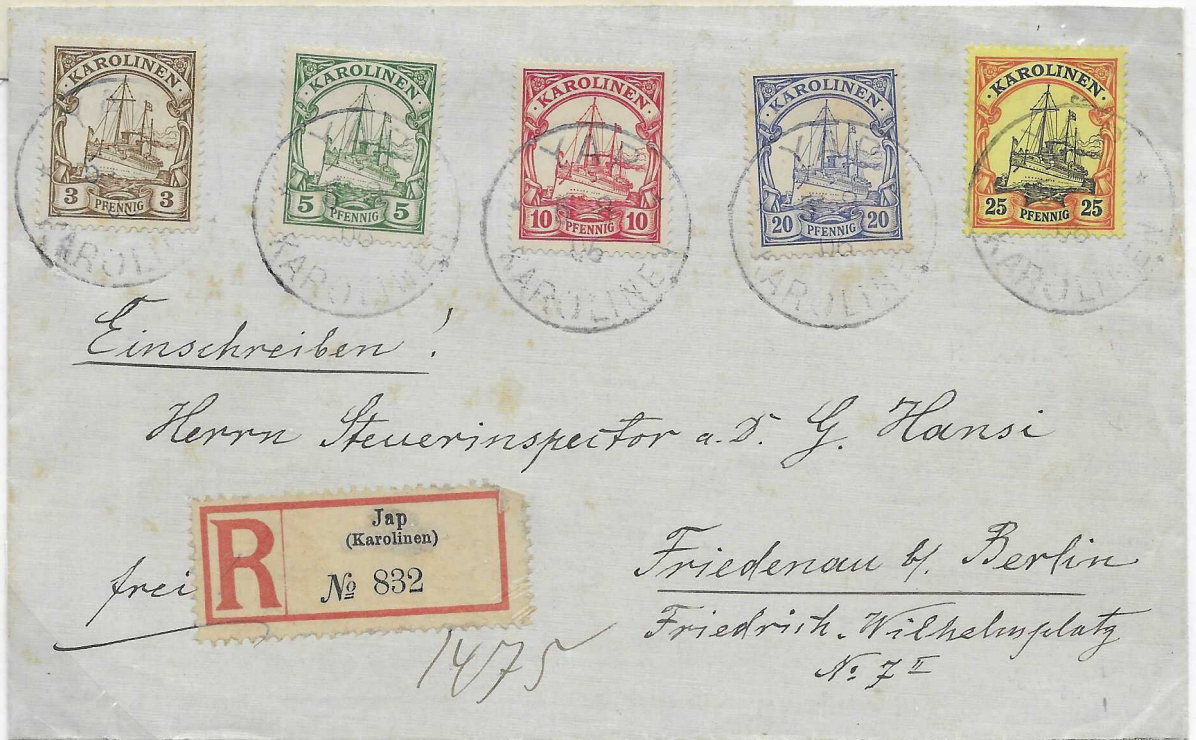 KAROLINEN
3 PFENNIG 3
KAROLINEN
5 PFENNIG 5
KAROLINEN
10 PFENNIG 10
KAROLINEN
20 PFENNIG 20
KAROLINEN
25 PFENNIG 25
YAP
06
KAROLINEN
Einschreiben!
Herrn Steuerinspector a. D. G. Hansi
R
Jap
(Karolinen)
No 832
frei
1475
Friedenau b/. Berlin
Friedrich-Wilhelmplatz
No. 7 II